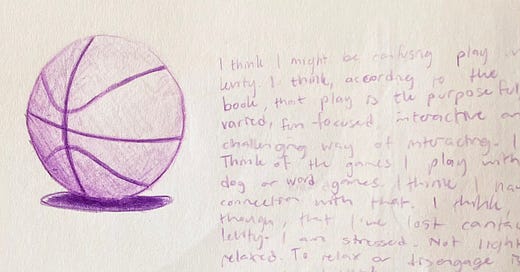 I think I might be confusing play
levity. I think, according to the
book, that play is the purposeful
varied, fun focused, interactive
challenging way of interacting. I
Think of the games I play with
dog or word games. I think I
connection with that. I think,
though, that I've lost contact
levity. I am stressed. Not
relaxed. To relax or disengage is